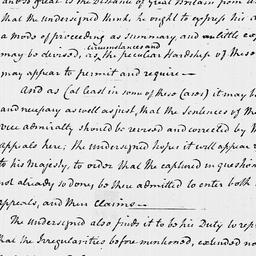 and so great is the Distance of Great Britain from
that the undersigned think, he ought to express his
a mode of proceeding as summary, and as little
circumstances and
may be devised, as the peculiar Hardship of these
may appear to permit and require —
And as (at least in some of these Cases) it may be
and necessary as well as just, that the Sentences of the
vice admiralty should be revised and corrected by
appeals here; the undersigned hopes it will appear
to his Majesty, to order that the captured in question
not already so done, be there admitted to enter both
appeals, and their claims —
The undersigned also finds it to be his Duty to
that the Irregularities before mentioned, extended no